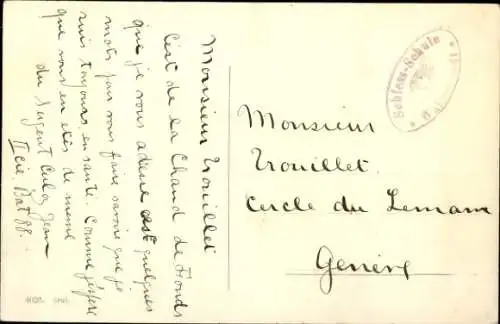 Monsieur Trouillet
C'est de la Chaud de Fonds
que je vous adresse quelques
mots pour vous faire savoir que je
suis toujours en santé. Comme j'espère
que vous en etes de meme
du Sergent Jean
II Cie Bat 88.
Schloss-Schule
Monsieur
Trouillet
Cercle du Lemann
Genève